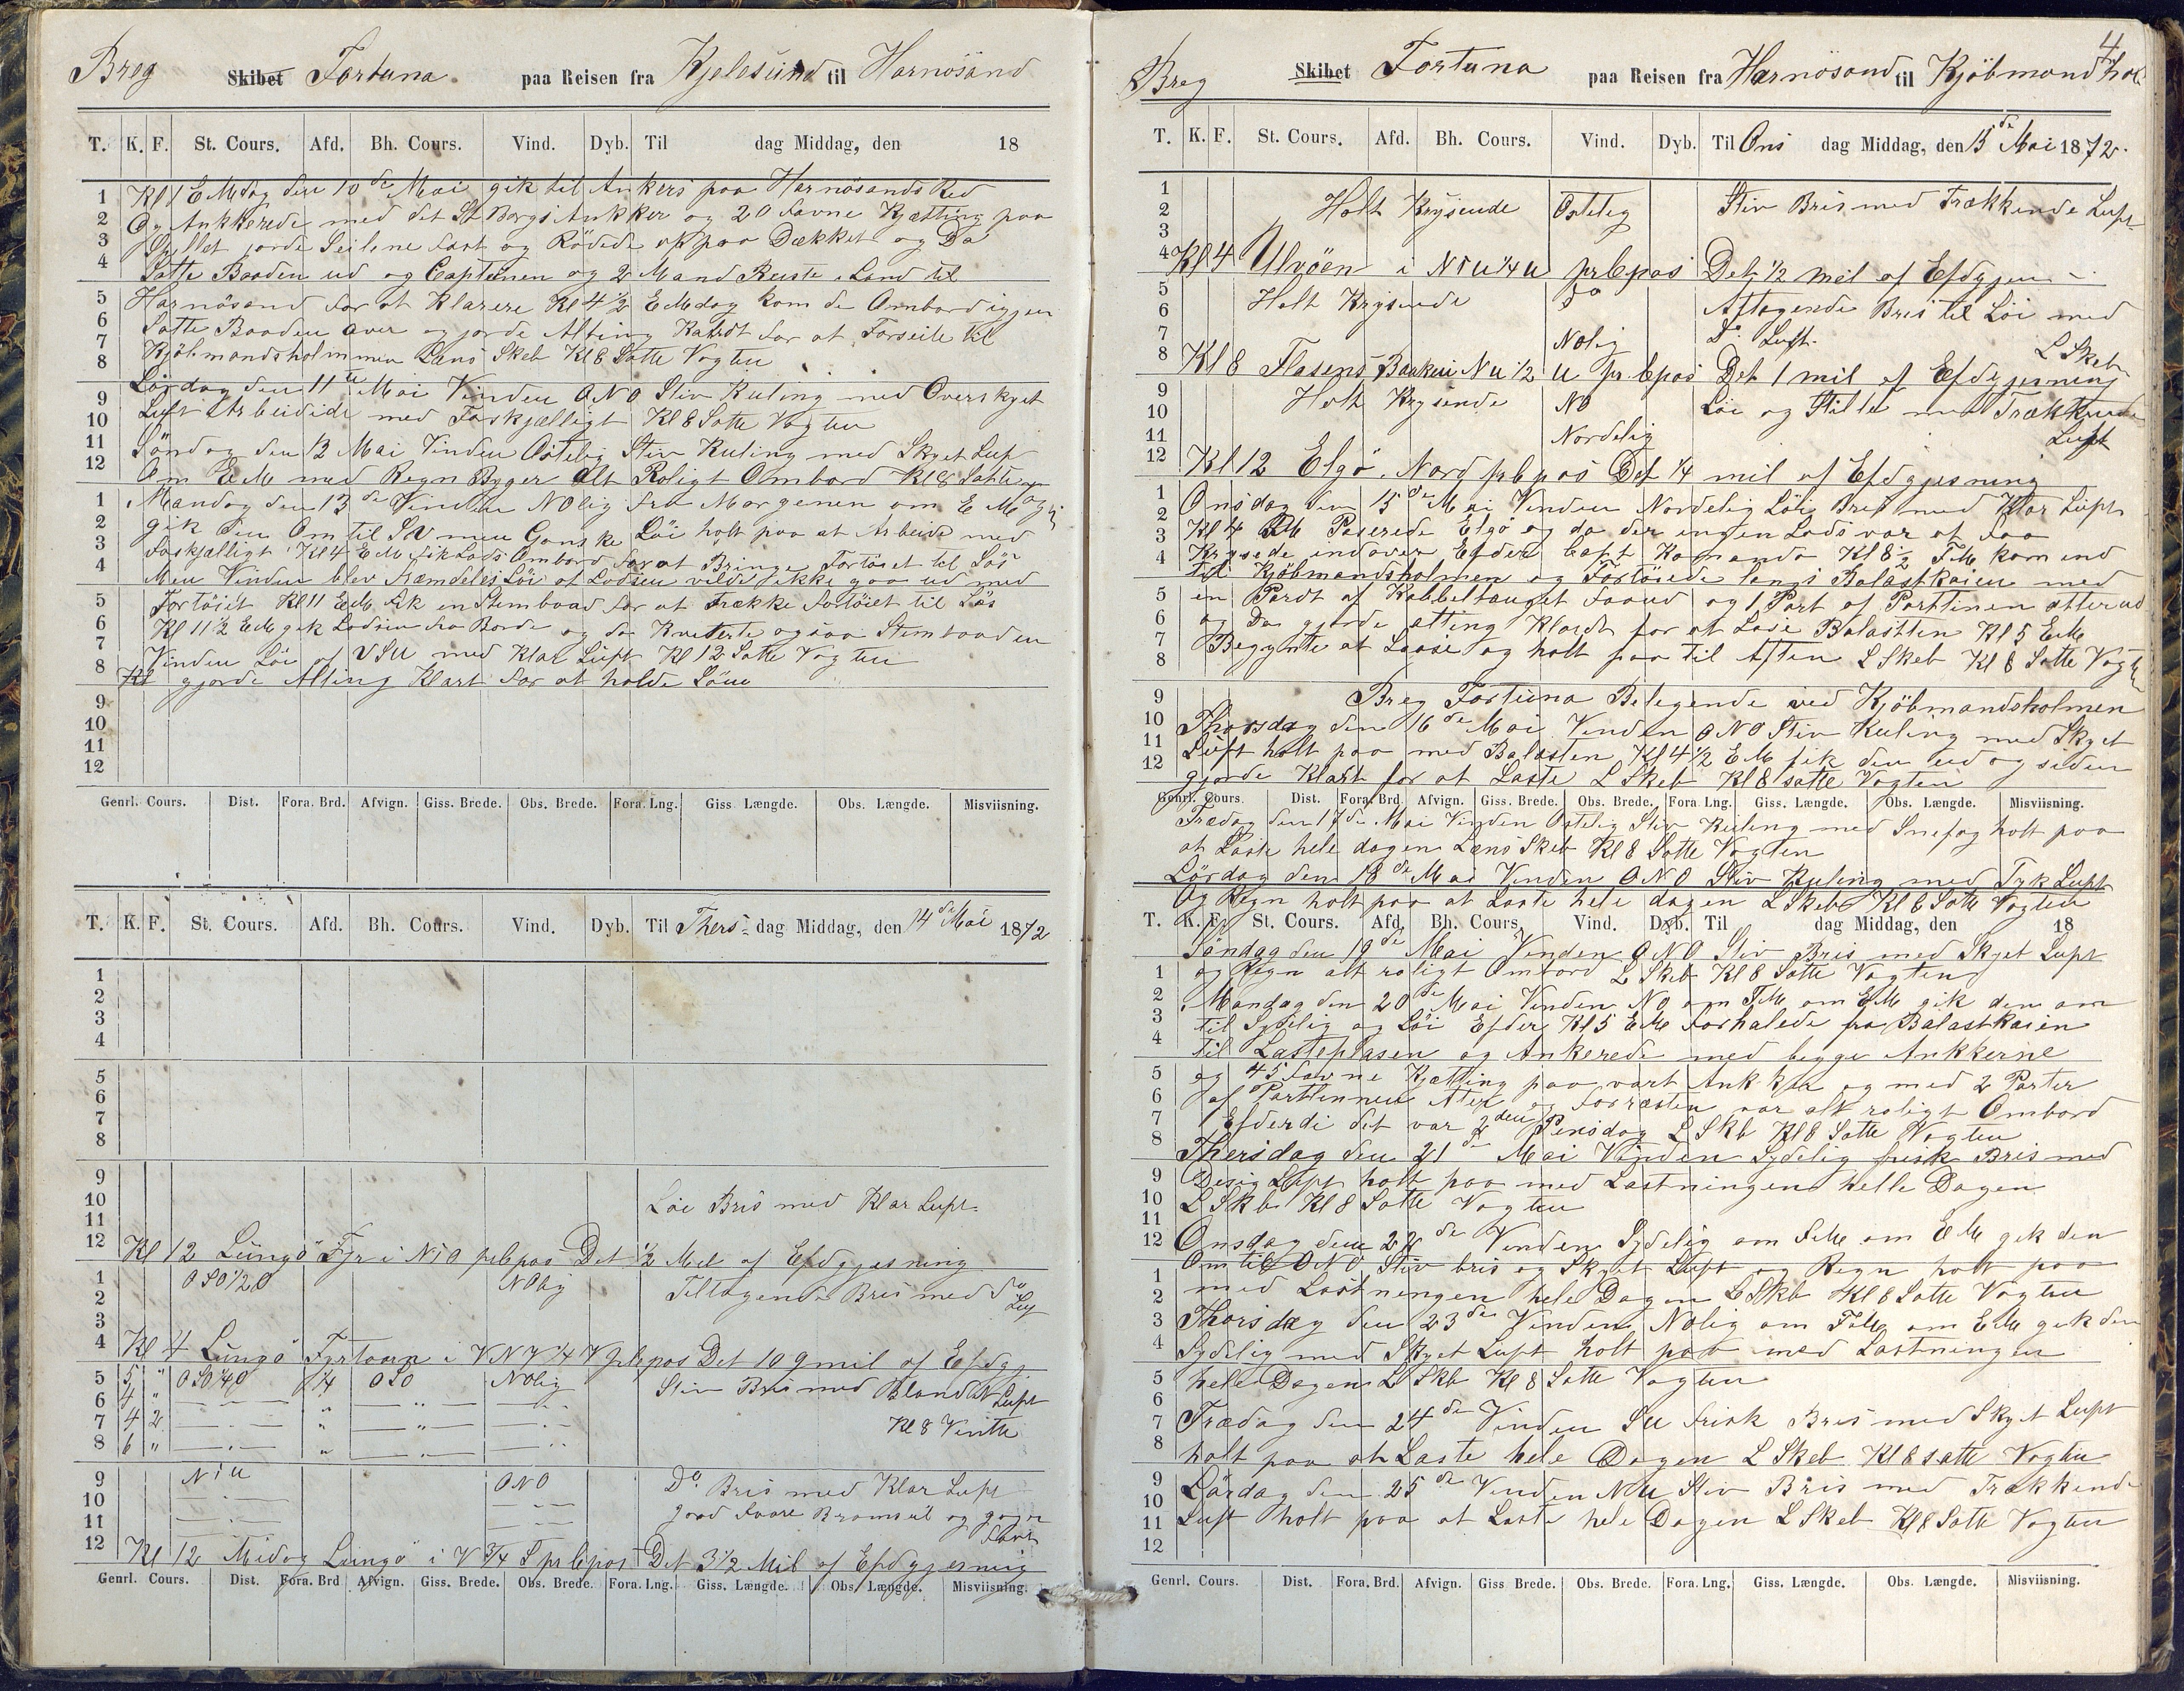 Breg Skibet Fortuna paa Reisen fra Kjelesund til Harnösand
T. K. F. St. Cours. Afd. Bh. Cours. Vind. Dyb. Til dag Middag, den 18
Kl 1 E Mdag den 10de Mai gik til Ankers paa Harnösands Red
Og Ankkerede med det St Borgs Ankker og 20 favne Kjætting paa
Spillet jorde Seilene fast og Rödede op paa Dækket og Da
Satte Baaden ud og Capteinen og 2 Mand Reiste i Land til
Harnösand for at Klarere Kl 4 1/2 E Mdag kom de Ombord igjen
Satte Baaden over og jorde Alting Klardt for at Forseile til
Kjöbmandsholmmen Læns Skeb Kl 8 Satte Vogten
Lördag den 11te Mai Vinden ONO Stiv Kuling med Overskyet
Luft Arbeidide med Forskjælligt Kl 8 Satte Vogten
Söndag den 12 Mai Vinden Ostelig Stiv Kuling med Skyet Luf
Om EM med Regn Byger Alt Roligt Ombord Kl 8 Satte Vogten
Mandag den 13de Vinden NOlig fra Morgenen om E M
gik den Om til SV men Ganske Löi holt paa at Arbeide med
foskjælligt Kl 4 E M fik Lods Ombord for at Bringe Fortöiet til Sös
Men Vinden blev fræmdeles Löi at Lodsen vilde ikke gaa ud med
Fortöiet Kl 11 EM fik en Stemboad for at trække fortöiet til Sös
Kl 11 1/2 EM gik Lodsen fra Borde og da Kvitterte ogsaa Stembaaden
Vinden Löi af VSU med Klar Luft Kl 12 Satte Vogten
Kl gjorde Alting Klart for at holde Söen
Genrl. Cours. Dist. Fora. Brd. Afvign. Giss. Brede. Obs. Brede. Fora. Lng. Giss. Længde. Obs. Længde. Misviisning.
T. K. F. St. Cours. Afd. Bh. Cours. Vind. Dyb. Til Thers- dag Middag, den 14de Mai 1872
1
2
3
4
5
6
7
8
9
10 Löi Bris med Klar Luft
11
12 Kl 12 Lüngö Fyr i N i O prCpas Det 1/2 Mil af Efdgjæsning
1 OSO 1/2 O NOlig Tiltagende Bris med do
2 Luf
3
4 Kl 4 Lüngö Fyrtaarn i VNV 1/4 V prCpas Det 10 qmil af Efdgj
5 5 " OSO 1/4 O 1/4 OSO NOlig Stiv Bris med Bland N Luft
6 4 "
7 4 2 Kl 8 Ventte
8 6 "
9 N i U ONO Do Bris med Klar Luft
10 jord faare Bramseil og
11
12 Kl 12 Midag Lüngö i V 3/4 S prCpas Det 3 1/2 Mil af Efdgjesning
Genrl. Cours. Dist. Fora. Brd Afvign. Giss. Brede. Obs. Brede. Fora. Lng. Giss. Længde. Obs. Længde. Misviisning.
4
Breg Skibet Fortuna paa Reisen fra Harnösand til Kjöbmandshol
T. K. F. St. Cours. Afd. Bh. Cours. Vind. Dyb. Til Ons dag Middag, den 15de Mai 1872.
Holt Krysende Ostelig Stiv Bris med Trækkende Luft
Kl 4 Ulvöen i N i U 1/4 U prCpas Det 1/2 mil af Efdgjen
Holt Krysende do Aftagende Bris til Löi med
Nolig do Luft
L Skeb
Kl 8 Flasens Baaken N U 1/2 U pr Cpas Det 1 mil af Efdgjesning
Holt Krysende NO Löi og Stille med Trækkende
Nordelig Luft
Kl 12 Elgö Nord prCpas Det 1/4 mil af Efdgjesning
Onsdag den 15de Mai Vinden Nordelig Löi Bris med Klar Luft
Kl 4 FM Paserede Elgö og da der ingen Lods var at faa
Krysede endover Efder Capt Komando Kl 8 1/2 FM kom end
til Kjöbmandsholmen og Fortöiede langs Balastkaien med
en Pardt af Kabbeltauget foraud og 1 Part af Parttinen atterud
og Da gjorde alting Klardt for at Lose Balastten Kl 5 EM
Begynte at Loose og holt paa til Aften L Skeb Kl 8 Satte Vogten
Breg Fortuna Belegende ved Kjöbmandsholmen
Thorsdag den 16de Mai Vinden ONO Stiv Kuling med Skyet
Luft holt paa med Balasten Kl 4 1/2 EM fik den ud og siden
gjorde Klart for at Laste L Skeb Kl 8 satte Vogten
Genrl. Cours. Dist. Fora. Brd. Afvign. Giss. Brede. Obs. Brede. Fora. Lng. Giss. Længde. Obs. Længde. Misviisning.
Fredag den 17de Mai Vinden Ostelig Stiv Kuling med Snefog holt paa
at Laste hele dagen Læns Skeb Kl 8 Satte Vogten
Lördag den 18de Mai Vinden ONO Stiv Kuling med Tyk Luft
Og Regn holt paa at Laste hele dagen L Skeb Kl 8 Satte Vogten
T. K. F. St. Cours. Afd. Bh. Cours. Vind. Dyb. Til dag Middag, den 18
Söndag den 19de Mai Vinden ONO Stiv Bris med Skyet Luft
og Regn alt roligt Ombord L Skeb Kl 8 Satte Vogten
Mandag den 20de Mai Vinden NO om FM om EM gik den om
til Sydelig og Löi Efder Kl 5 EM forhalede fra Balastkaien
til Lasteplasen og Ankerede med begge Ankkerne
og 45 favne Kjætting paa vært Ankker og med 2 Parter
af Parttinnen Ater og forræsten var alt roligt Ombord
Efderdi det var 2den Pinsdag L Skb Kl 8 Satte Vogten
Thersdag den 21de Mai Vinden Sydelig frisk Bris med
Desig Luft holt paa med Lastningen helle Dagen
L Skb Kl 8 Satte Vogten
Onsdag den 22de Vinden Sydelig om FM om EM gek den
Om til ONO Stiv bris og Skyet Luft og Regn holt paa
med Lastningen hele Dagen L Skb Kl 8 Satte Vogten
Thorsdag den 23de Vinden Nolig om FM om EM gek den
Sydelig med Skyet Luft holt paa med Lastningen
hele Dagen L Skb Kl 8 Satte Vogten
Fredag den 24de Vinden SU frisk Bris med Skyet Luft
holt paa at Laste hele Dagen L Skeb Kl 8 satte Vogten
Lördag den 25de Vinden NU Stiv Bris med Trækkende
Luft holt paa at Laste hele Dagen L Skeb Kl 8 Satte Vogten
Genrl. Cours. Dist. Fora. Brd. Afvign. Giss Brede. Obs. Brede. Fora. Lng. Giss. Længde. Obs. Længde. Misviisning.